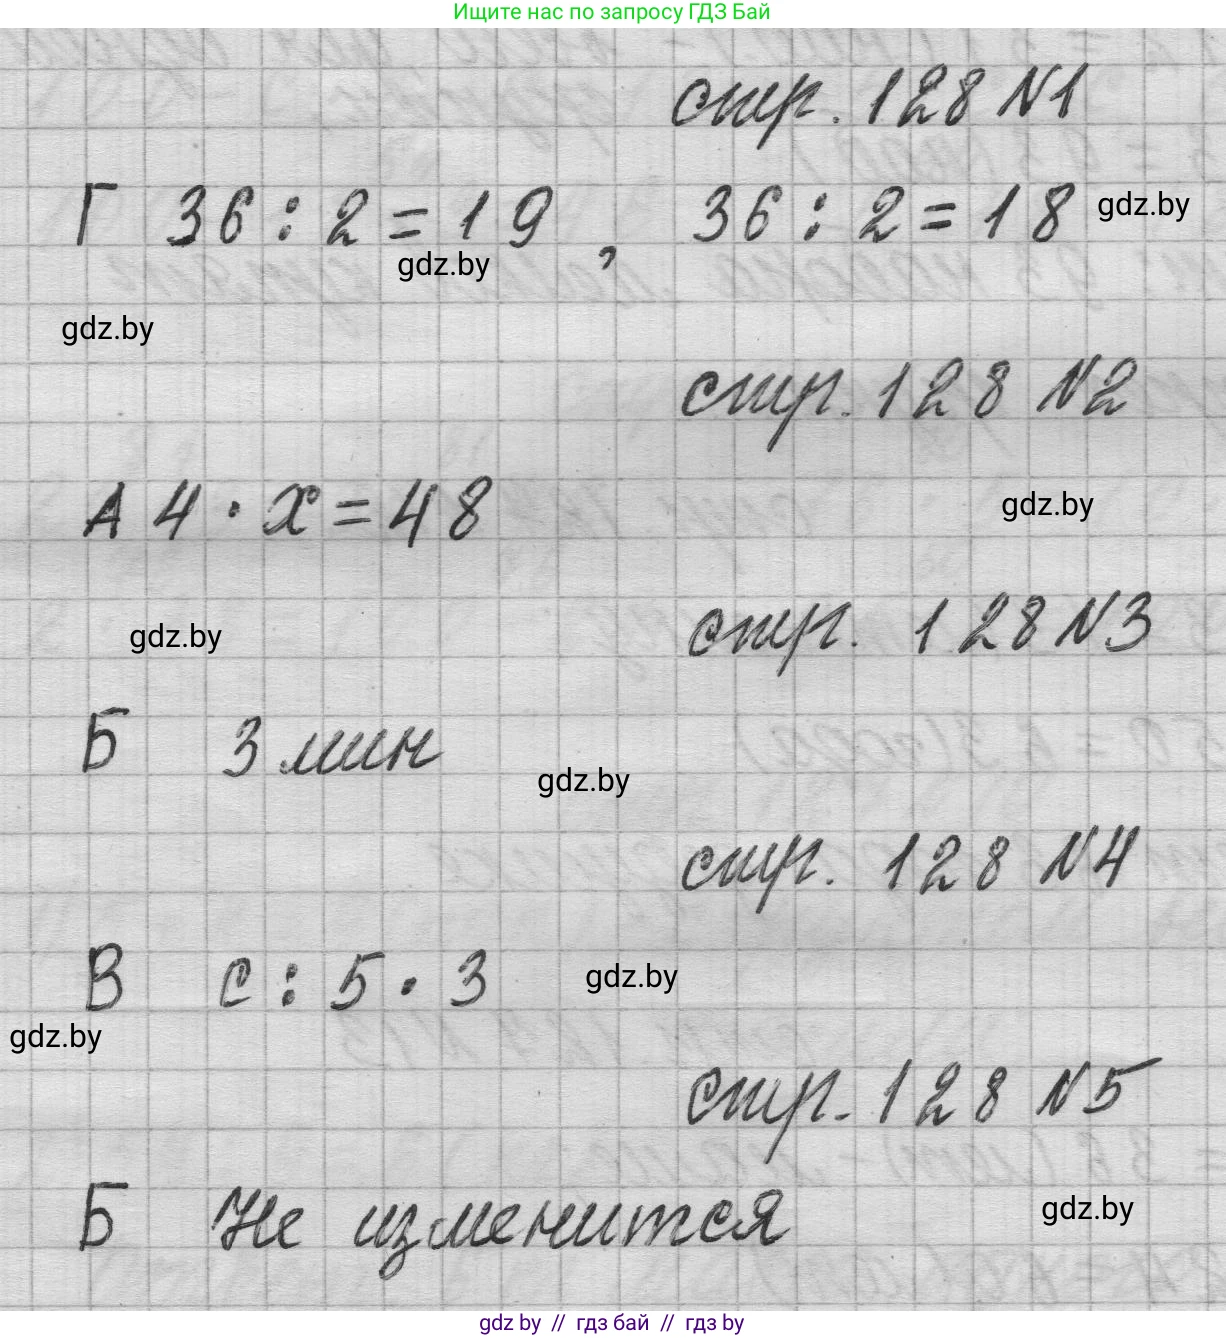 Ищите нас по запросу ГДЗ Бай
стр. 128 N1
Г 36 : 2 = 19 , 36 : 2 = 18 gdz.by
gdz.by
gdz.by
стр. 128 N2
А 4 · x = 48 gdz.by
стр. 128 N3
gdz.by
Б 3 мин
gdz.by
стр. 128 N4
В с : 5 · 3 gdz.by
gdz.by
стр. 128 N5
Б Не изменится gdz.by
gdz.by // гдз бай // гдз by